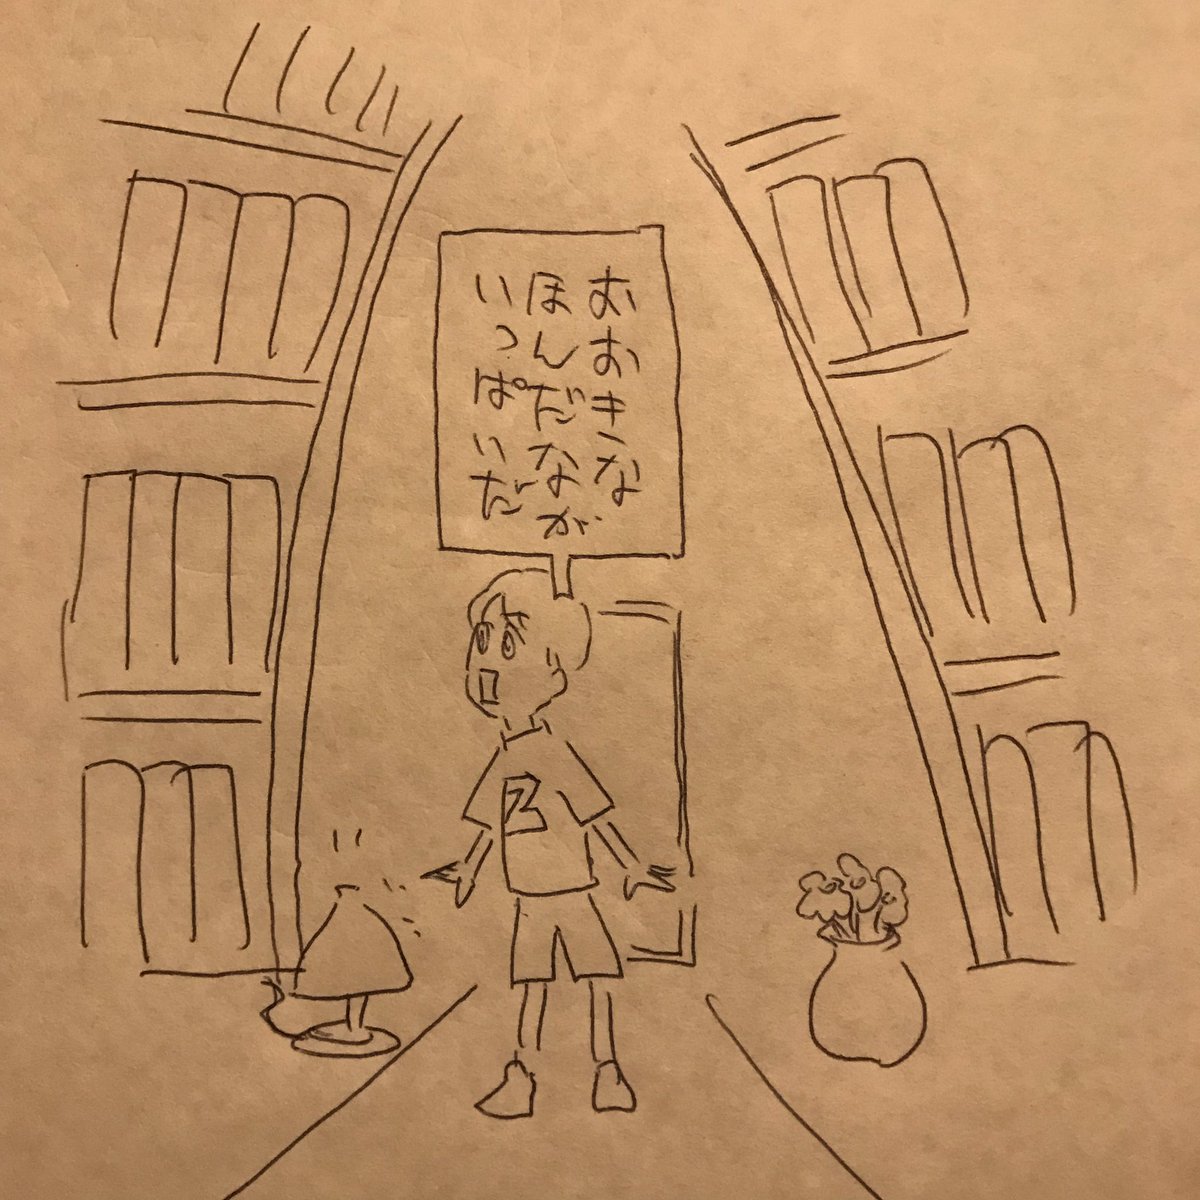 おおきな
ほんだなが
いっぱいだ